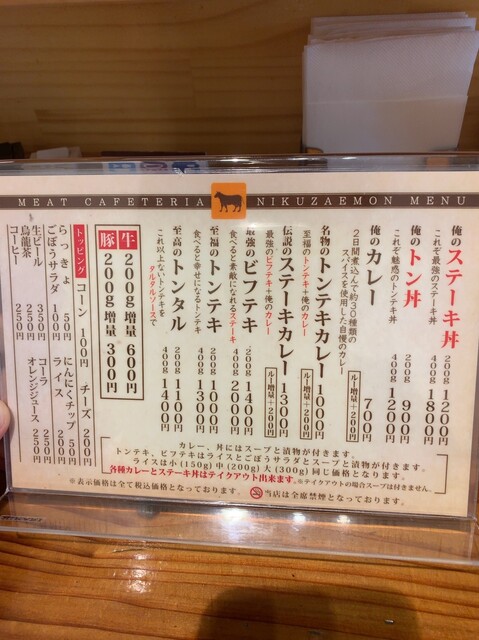 MEAT CAFETERIA NIKUZAEMON MENU
俺のステーキ丼 200g 1200円
これぞ最強のステーキ丼 400g 1800円
俺のトン丼 200g 900円
これぞ魅惑のトンテキ丼 400g 1200円
俺のカレー 700円
2日間煮込んで約30種類の
スパイスを使用した自慢のカレー
ルー増量+200円
名物のトンテキカレー 1000円
至福のトンテキ+俺のカレー
ルー増量+200円
伝説のステーキカレー 1300円
最強のビフテキ+俺のカレー
ルー増量+200円
最強のビフテキ 200g 1400円
食べると素敵になれるステーキ 400g 2000円
至福のトンテキ 200g 1000円
食べると幸せになるトンテキ 400g 1300円
至高のトンタル 200g 1100円
これ以上ないトンテキを 400g 1400円
タルタルソースで
牛 200g増量 600円
豚 200g増量 300円
トッピング
コーン 100円 チーズ 200円
らっきょ 50円 にんにくチップ 50円
ごぼうサラダ 100円 ライス 200円
生ビール 350円 コーラ 250円
烏龍茶 250円 オレンジジュース 250円
コーヒー 250円
カレー、丼にはスープと漬物が付きます。
トンテキ、ビフテキはライスとごぼうサラダとスープと漬物が付きます。
ライスは小(150g)中(200g)大(300g)同じ価格となります。
各種カレーとステーキ丼はテイクアウト出来ます。※テイクアウトの場合スープは付きません。
※表示価格は全て税込価格となっております。 当店は全席禁煙となっております。